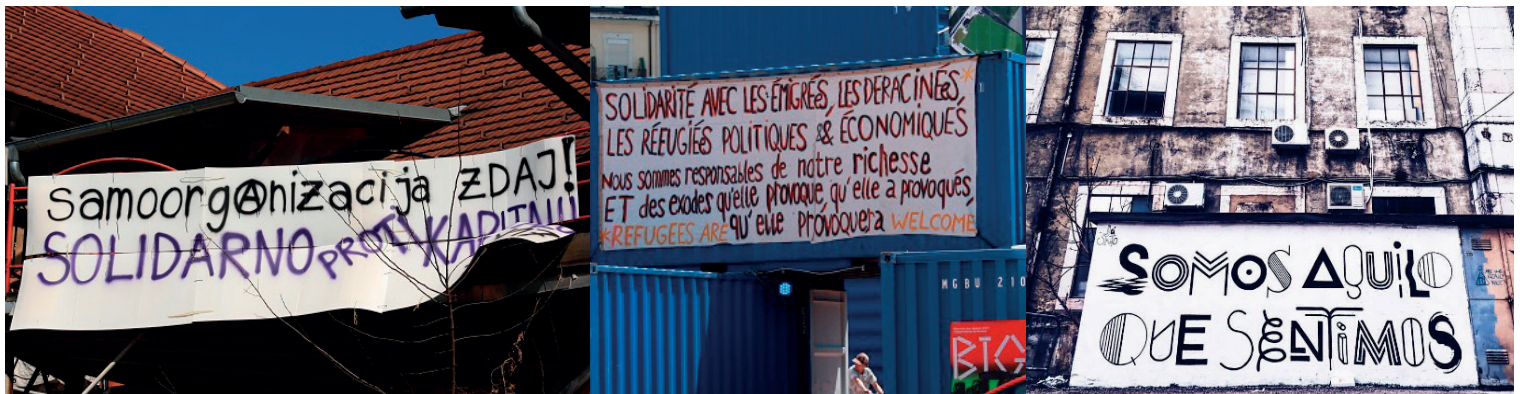 samoorgAnizacija ZDAJ!
SOLIDARNO PROTI KAPITALU
SOLIDARITÉ AVEC LES ÉMIGRÉS, LES DERACINÉS,*
LES RÉFUGIÉS POLITIQUES & ÉCONOMIQUES
NOUS SOMMES RESPONSABLES de notre richesse
ET des exodes qu'elle provoque, qu'elle a provoqués,
qu'elle provoquera WELCOME
*REFUGEES ARE
MGBU 210
BIG
SOMOS AQUILO
QUE SENTIMOS